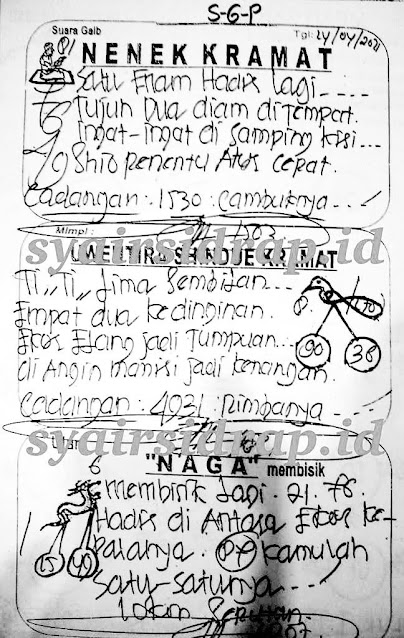 S-G-P
Suara Gaib
Tgl: 24/04/2021
NENEK KRAMAT
Satu Enam Hadir lagi
Tujuh Dua diam di Tempat.
Ingat-Ingat di Samping kiri
Shio penentu Atur cepat.
Cadangan : 1530 : Cambuknya
Mimpi :
syairsidrap.id
KRAMAT
Ti,, Ti,, Lima Sembilan
Empat dua kedinginan.
Ekor Elang jadi Tumpuan
di Angin jadi kenangan.
90
38
Cadangan : 4931 : Rimbanya
syairsidrap.id
6
"NAGA" membisik
membisik lagi. 21. 78.
Hadir di Antara Ekor ke-
palanya. kamulah
15
Satu-satunya